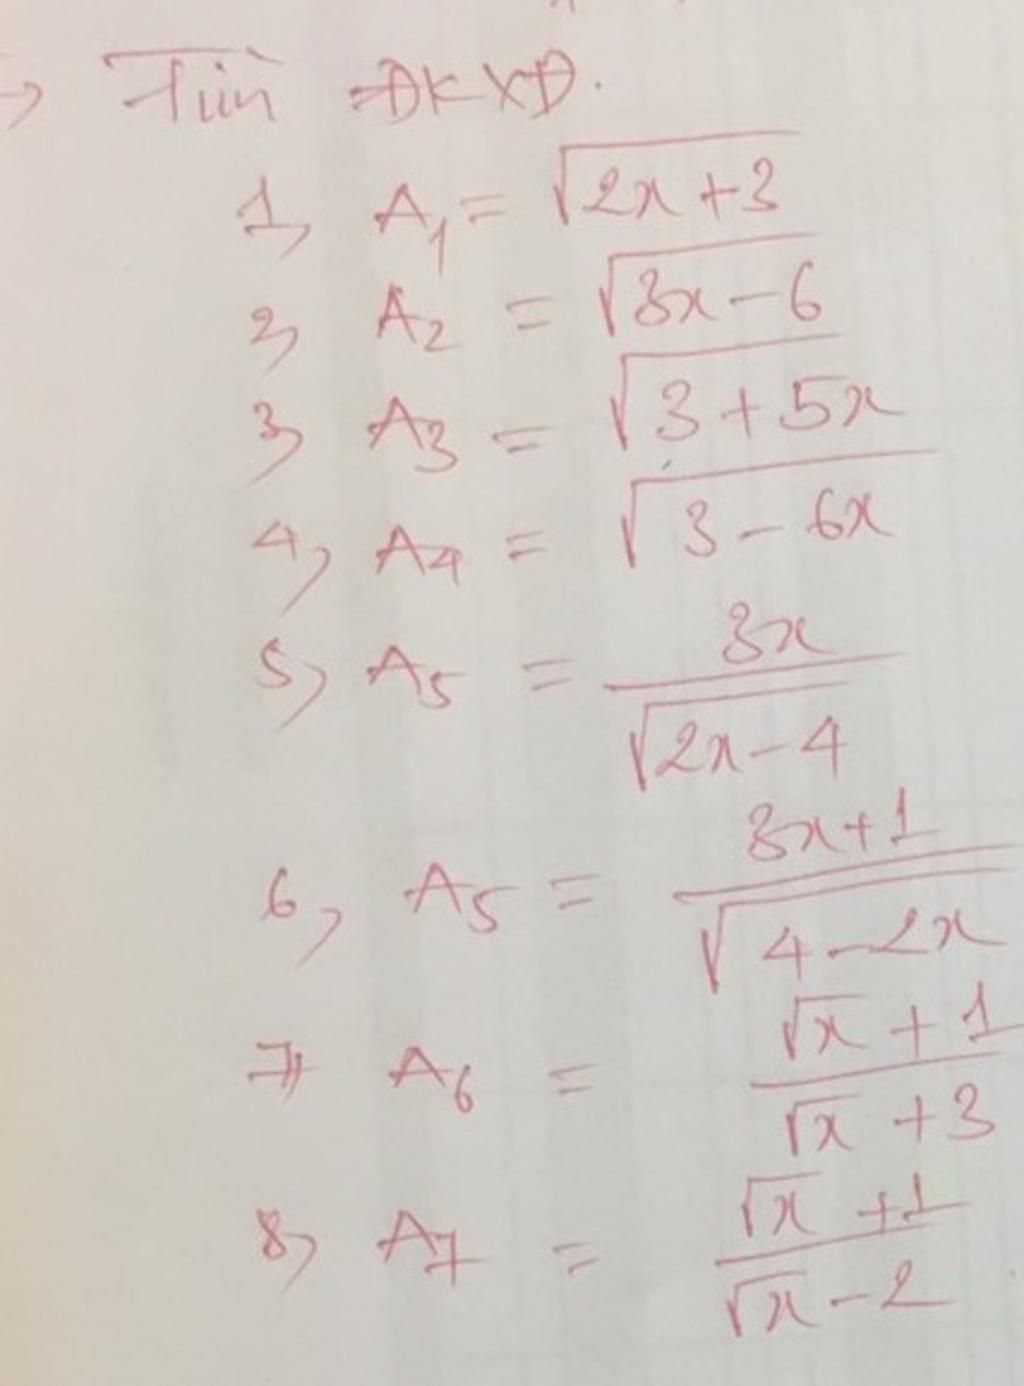 → Tìm ĐKXĐ.
1, A₁ = √(2x+3)
2, A₂ = √(3x-6)
3, A₃ = √(3+5x)
4, A₄ = √(3-6x)
5, A₅ = 3x/√(2x-4)
6, A₅ = 3x+1/√(4-2x)
7, A₆ = √x + 1/√x + 3
8, A₇ = √x + 1/√x - 2